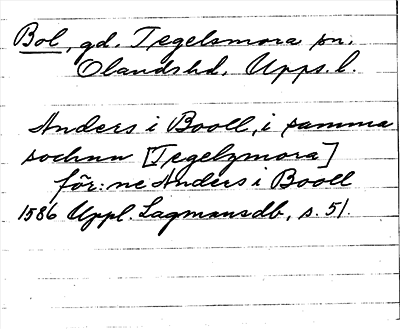 Bol, gd. Tegelsmora sn.
Olandshd, Upps. l.
Anders i Booll, i samma
sochnn [Tegelzmora]
för:ne Anders i Booll
1586 Uppl. Lagmansdb, s. 51